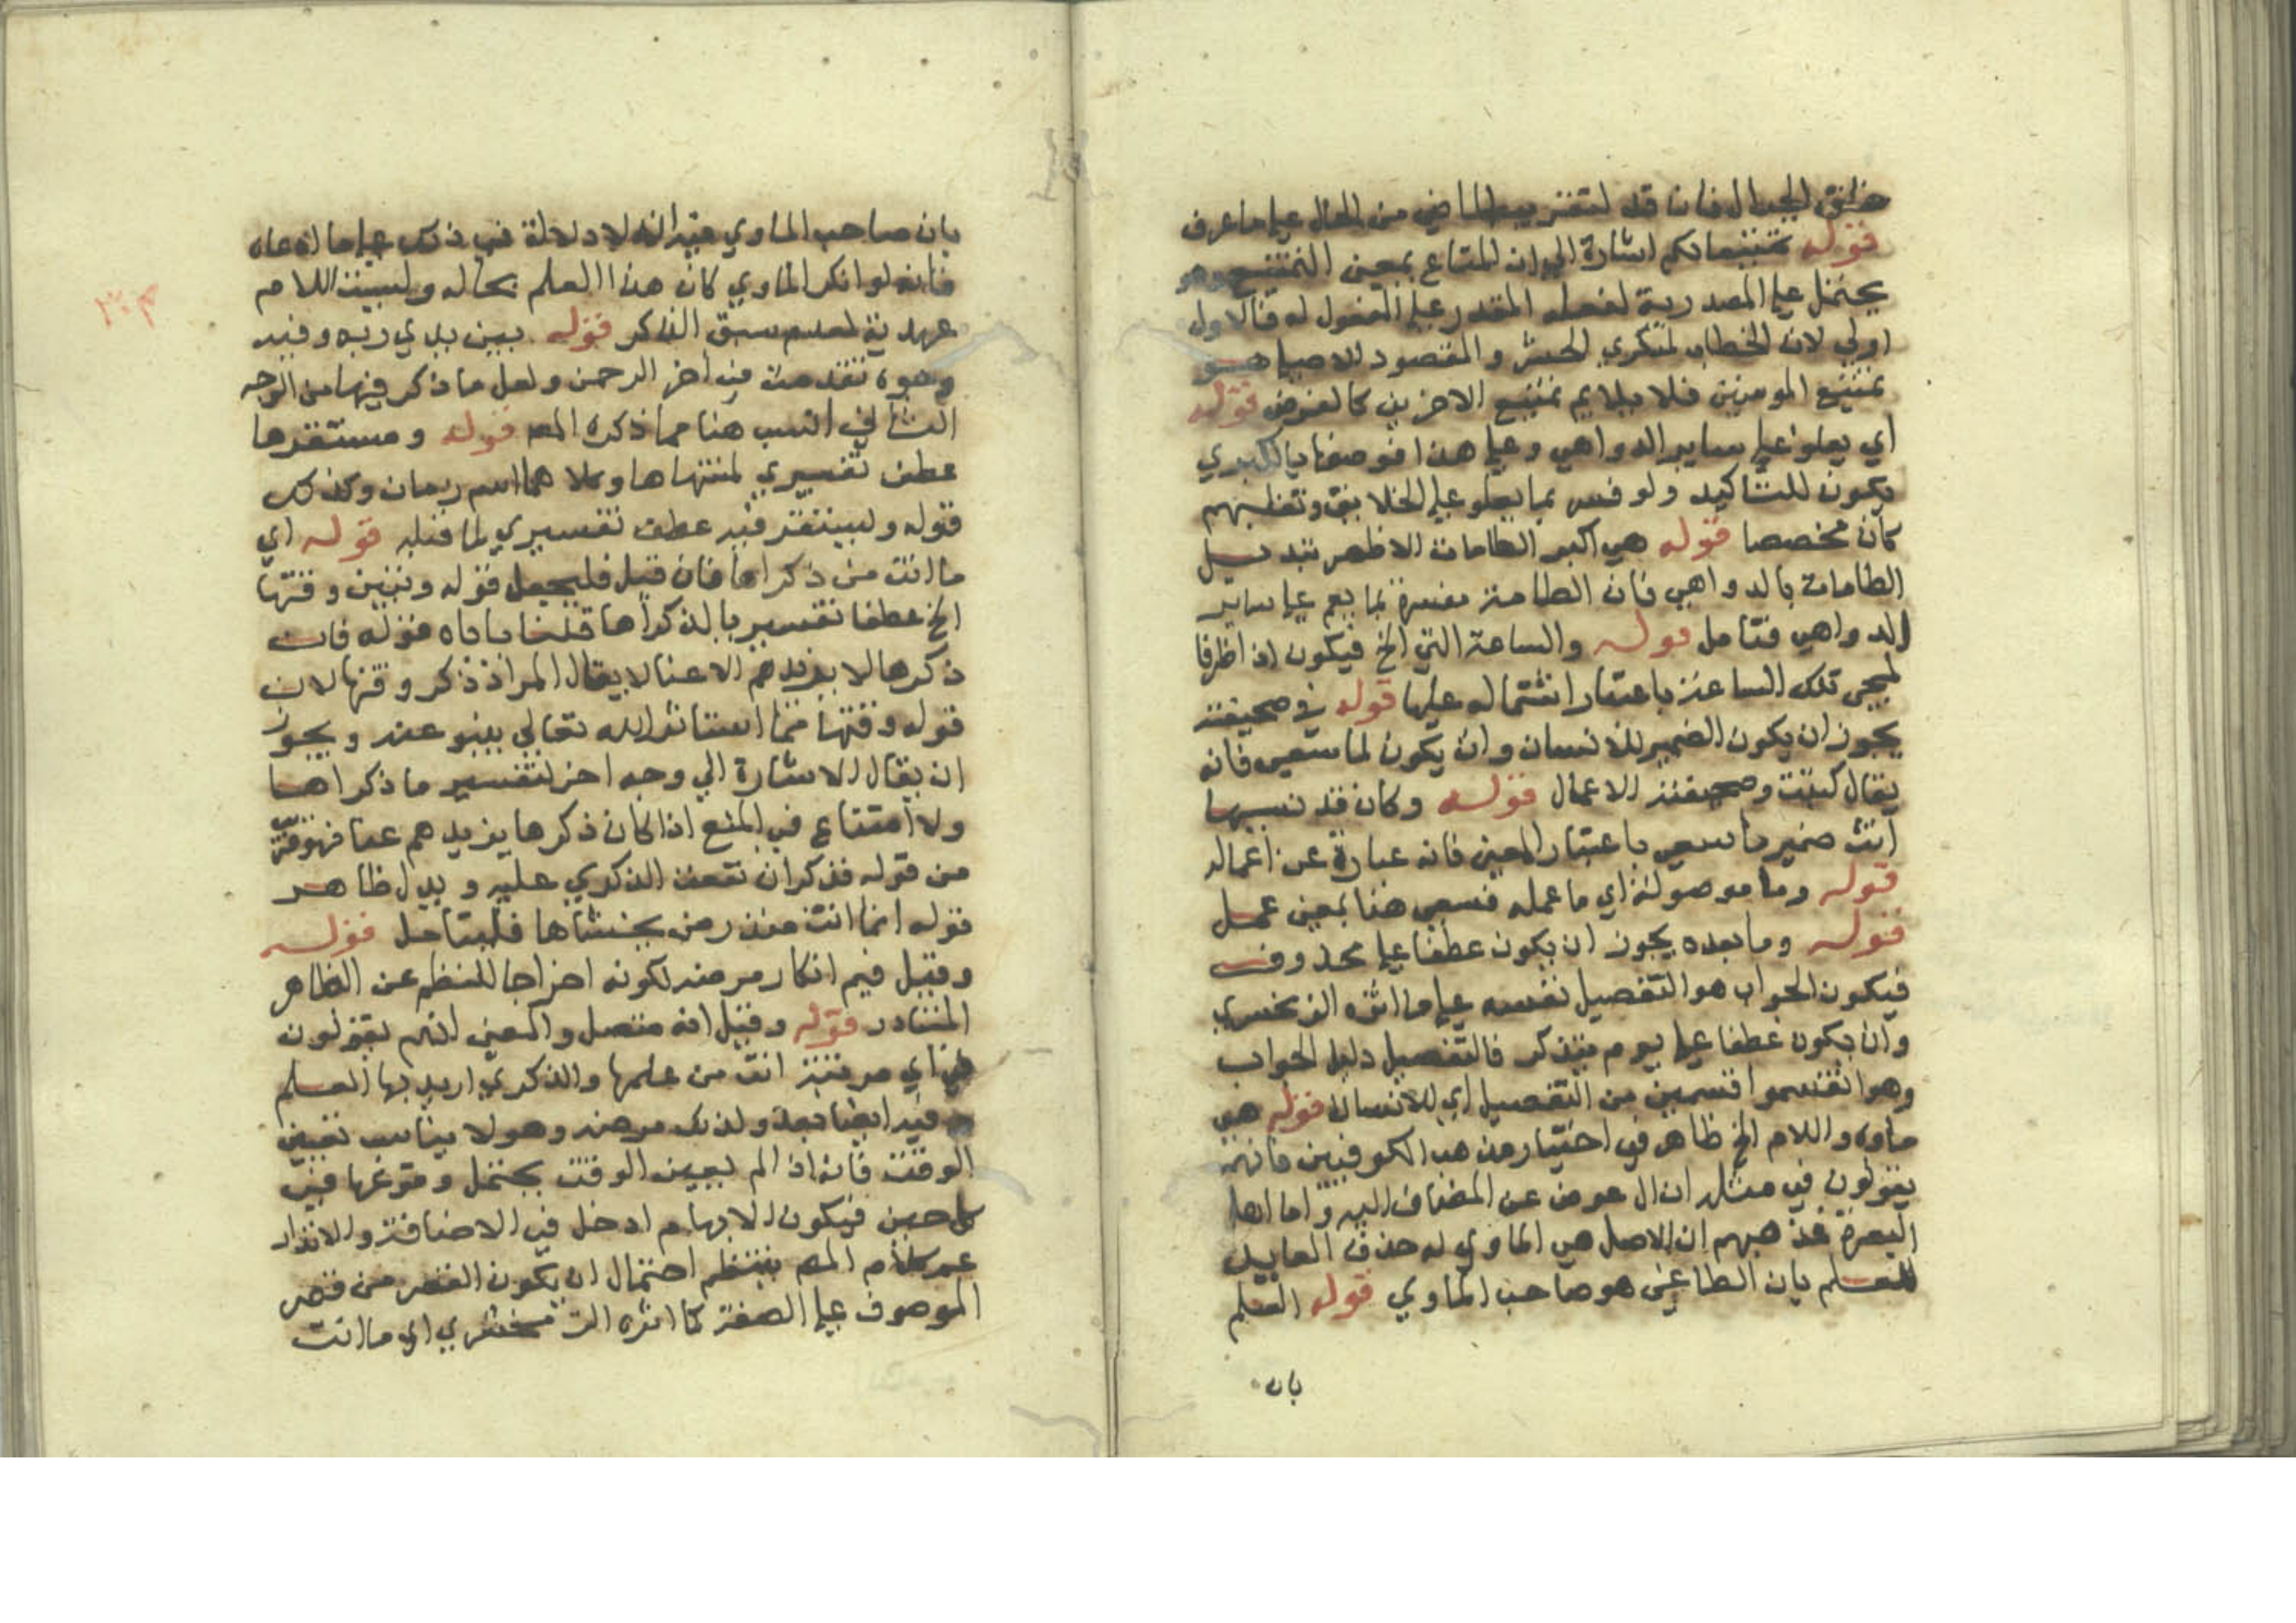 خلق الجبال فان قد لتقريب الماضي من الحال على ما عرف
قوله تمتيعا لكم اشارة الى ان المتاع بمعنى التمتيع وهو
يحتمل على المصدرية لفعله المقدر على المفعول له فالاول
اولى لان الخطاب لمنكري الحشر والمقصود الاصلي هو
تمتيع المومنين فلا يلايم تمتيع الاخرين كالغرض قوله
اي يعلو على ساير الدواهي وعلى هذا فوصفها بالكبرى
يكون للتاكيد ولو فسر بما يعلو على الخلايق وتغلبهم
كان مخصصا قوله هي اكبر الطامات الاظهر تبديل
الطامات بالدواهي فان الطامة مفسرة بما يعم على ساير
الدواهي فتامل قوله والساعة التي الخ فيكون اذ اظرفا
لمجي تلك الساعة باعتبار اشتماله عليها قوله في صحيفته
يجوز ان يكون الضمير للانسان وان يكون لما سعى فانه
يقال كتبت وصحيفته الاعمال قوله وكان قد نسيها
انث ضمير ما سعى باعتبار المعنى فانه عبارة عن اعماله
قوله وما موصولة اي ما عمله فسعى هنا بمعنى عمل
قوله وما بعده يجوز ان يكون عطفا على محذوف
فيكون الجواب هو التفصيل نفسه على ما اثره الزمخشري
وان يكون عطفا على يوم يتذكر فالتفصيل دليل الجواب
وهو انقسموا قسمين من التفصيل اي للانسان قوله هي
ماواه واللام الخ ظاهر في اختيار مذهب الكوفيين فانهم
يقولون في مثله ان ال عوض عن المضاف اليه واما اهل
البصرة فمذهبهم ان الاصل هي الماوى له حذف العايد
للعلم بان الطاغي هو صاحب الماوي قوله العلم
بان
بان صاحب الماوي فيه انه لا دلالة في ذلك على ما ادعاه
فانه لو انكر الماوي كان هذا العلم بحاله وليست اللام
عهدية لعدم سبق الذكر قوله بين يدي ربه وفيه
وجوه تقدمت في اخر الرحمن ولعل ما ذكر فيها من الوجه
الثاني انسب هنا مما ذكره المص قوله ومستقرها
عطف تفسيري لمنتهاها وكلاهما اسم زمان وكذلك
قوله وليستقر فيه عطف تفسيري لما قبله قوله اي
ما انت من ذكراها فان قيل فليجعل قوله وتبيين وقتها
الخ عطفا تفسيريا لذكراها قلنا ياباه قوله فان
ذكرها لا يزيدهم الا عنا لا يقال المراد ذكر وقتها لان
قوله وقتها مما استاثر الله تعالي ينبو عنه ويجوز
ان يقال الاشارة الي وجه اخر لتفسير ما ذكراها
ولا امتناع في المنع اذا كان ذكرها يزيدهم عنا فهو
من قوله فذكر ان نفعت الذكري عليه ويدل ظاهر
قوله انما انت منذر من يخشاها فليتامل قوله
وقيل فيم انكار مرضه لكونه اخراجا للنظم عن الظاهر
المتبادر قوله وقيل انه متصل والمعنى انهم يقولون
في اي مرتبة انت من علمها والذكري اريد بها العلم
فيه ايضا بعد ولذلك مرضه وهو لا يناسب تعيين
الوقت فانه اذا لم يعين الوقت يحتمل وقوعها في
كل حين فيكون الابهام ادخل في الاضافة والانذار
كلام المص ينتظم احتمال ان يكون القصر من قصر
الموصوف على الصفة كما اثره الزمخشري اي ما انت